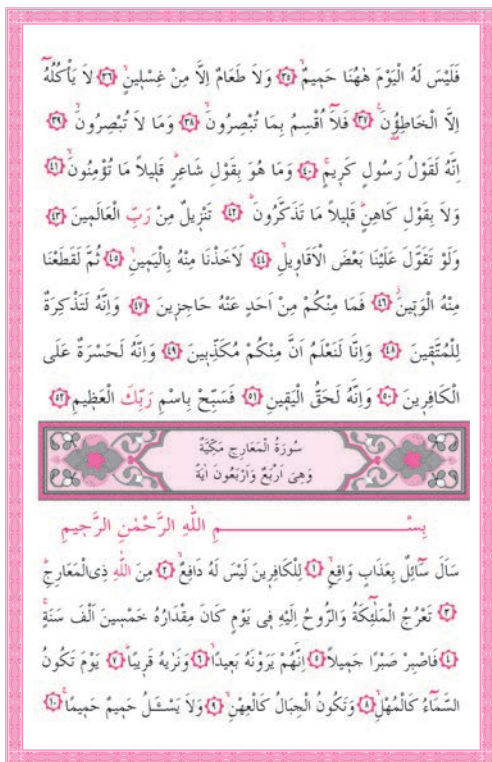 فَلَيْسَ لَهُ الْيَوْمَ هٰهُنَا حَمِيمٌ ﴿٣٥﴾ وَلَا طَعَامٌ اِلَّا مِنْ غِسْلِينٍ ﴿٣٦﴾ لَا يَأْكُلُهُٓ
اِلَّا الْخَاطِؤُنَ ﴿٣٧﴾ فَلَٓا اُقْسِمُ بِمَا تُبْصِرُونَ ﴿٣٨﴾ وَمَا لَا تُبْصِرُونَ ﴿٣٩﴾
اِنَّهُ لَقَوْلُ رَسُولٍ كَرِيمٍ ﴿٤٠﴾ وَمَا هُوَ بِقَوْلِ شَاعِرٍ قَلِيلًا مَا تُؤْمِنُونَ ﴿٤١﴾
وَلَا بِقَوْلِ كَاهِنٍ قَلِيلًا مَا تَذَكَّرُونَ ﴿٤٢﴾ تَنْزِيلٌ مِنْ رَبِّ الْعَالَمِينَ ﴿٤٣﴾
وَلَوْ تَقَوَّلَ عَلَيْنَا بَعْضَ الْاَقَاوِيلِ ﴿٤٤﴾ لَاَخَذْنَا مِنْهُ بِالْيَمِينِ ﴿٤٥﴾ ثُمَّ لَقَطَعْنَا
مِنْهُ الْوَتِينَ ﴿٤٦﴾ فَمَا مِنْكُمْ مِنْ اَحَدٍ عَنْهُ حَاجِزِينَ ﴿٤٧﴾ وَاِنَّهُ لَتَذْكِرَةٌ
لِلْمُتَّقِينَ ﴿٤٨﴾ وَاِنَّا لَنَعْلَمُ اَنَّ مِنْكُمْ مُكَذِّبِينَ ﴿٤٩﴾ وَاِنَّهُ لَحَسْرَةٌ عَلَى
الْكَافِرِينَ ﴿٥٠﴾ وَاِنَّهُ لَحَقُّ الْيَقِينِ ﴿٥١﴾ فَسَبِّحْ بِاسْمِ رَبِّكَ الْعَظِيمِ ﴿٥٢﴾
سُورَةُ الْمَعَارِجِ مَكِّيَّةٌ
وَهِىَ اَرْبَعٌ وَاَرْبَعُونَ اٰيَةً
بِسْمِ اللّٰهِ الرَّحْمٰنِ الرَّحِيمِ
سَاَلَ سَٓائِلٌ بِعَذَابٍ وَاقِعٍ ﴿١﴾ لِلْكَافِرِينَ لَيْسَ لَهُ دَافِعٌ ﴿٢﴾ مِنَ اللّٰهِ ذِى الْمَعَارِجِ
﴿٣﴾ تَعْرُجُ الْمَلٰٓئِكَةُ وَالرُّوحُ اِلَيْهِ فِى يَوْمٍ كَانَ مِقْدَارُهُ خَمْسِينَ اَلْفَ سَنَةٍ
﴿٤﴾ فَاصْبِرْ صَبْرًا جَمِيلًا ﴿٥﴾ اِنَّهُمْ يَرَوْنَهُ بَعِيدًا ﴿٦﴾ وَنَرٰيهُ قَرِيبًا ﴿٧﴾ يَوْمَ تَكُونُ
السَّمَٓاءُ كَالْمُهْلِ ﴿٨﴾ وَتَكُونُ الْجِبَالُ كَالْعِهْنِ ﴿٩﴾ وَلَا يَسْـَٔلُ حَمِيمٌ حَمِيمًا ﴿١٠﴾